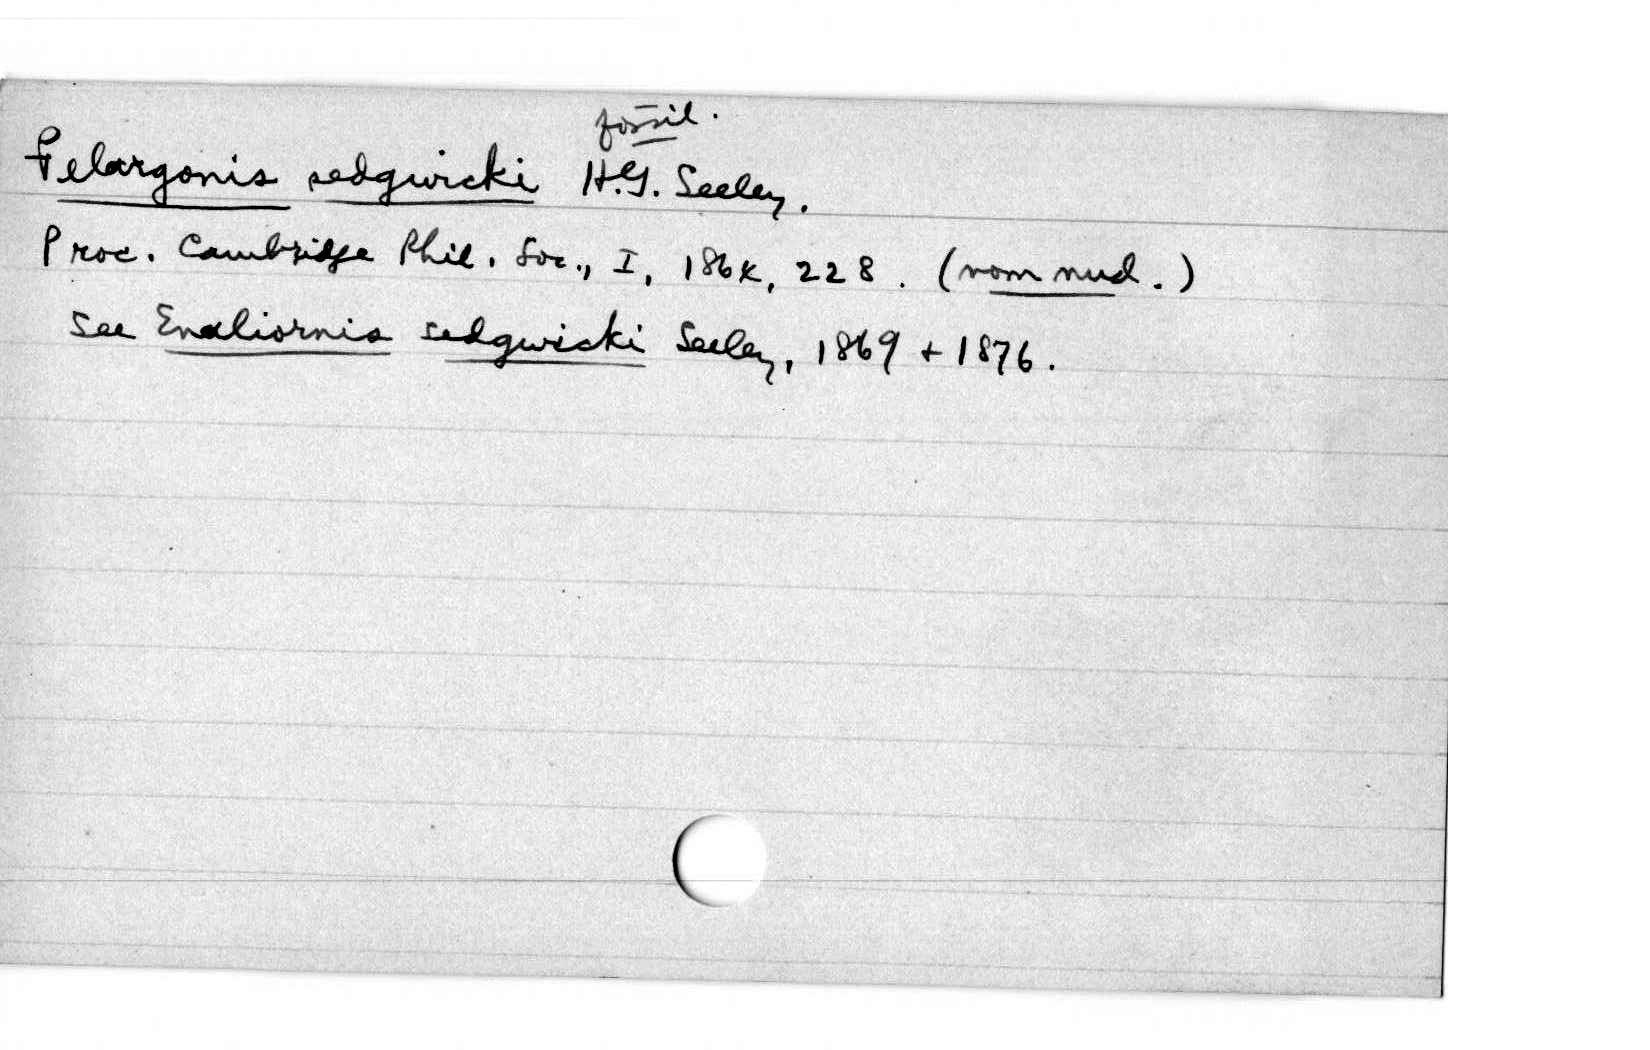 fossil.
Pelargonis sedgwicki H.G. Seeley.
Proc. Cambridge Phil. Soc., I, 1864, 228. (nom nud.)
see Enaliornis sedgwicki Seeley, 1869 + 1876.